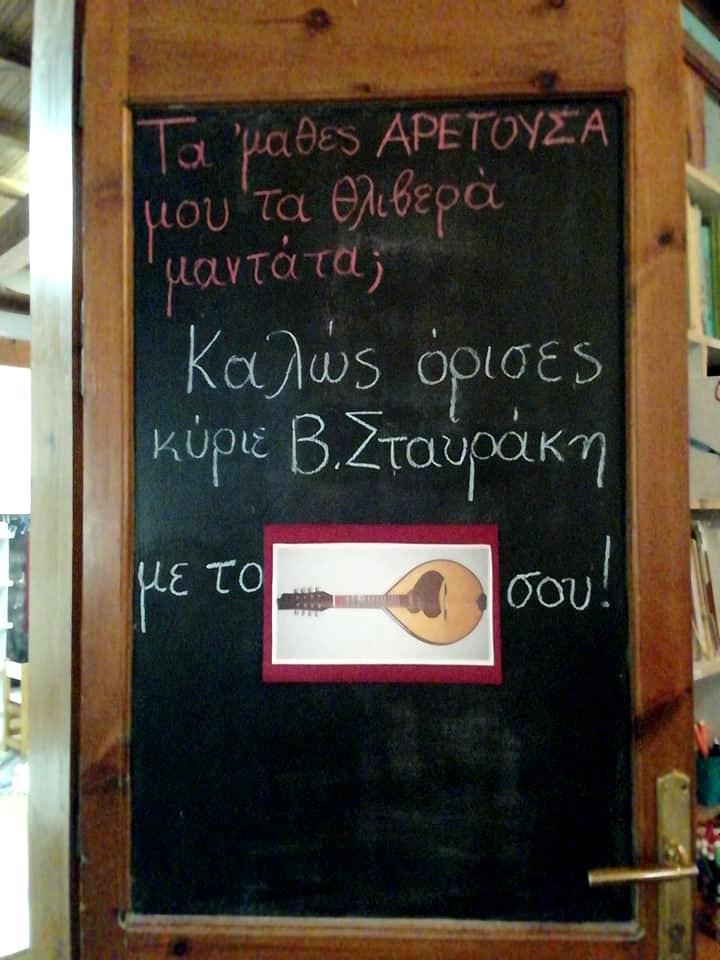 Τα 'μαθες ΑΡΕΤΟΥΣΑ
μου τα θλιβερά
μαντάτα;
Καλώς όρισες
κύριε Β. Σταυράκη
με το σου!